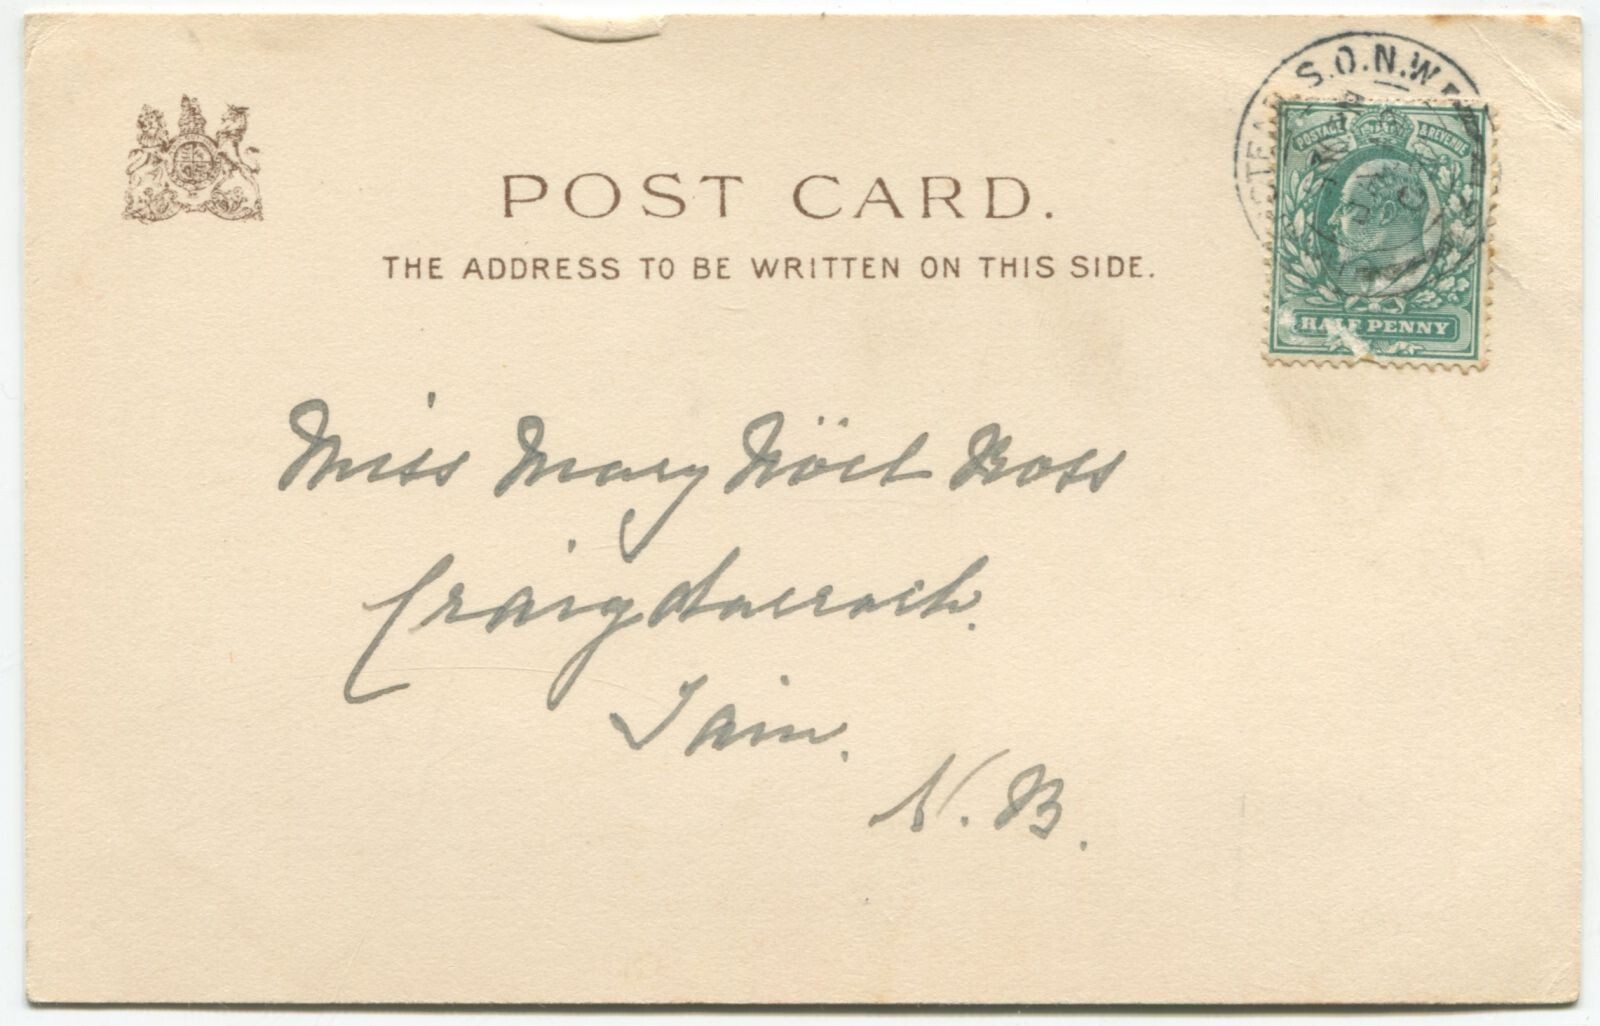 S.O.N.W.
POSTAGE & REVENUE
HALF PENNY
POST CARD.
THE ADDRESS TO BE WRITTEN ON THIS SIDE.
Miss Mary Nöel Ross
Craigdarroch.
Tain.
N.B.